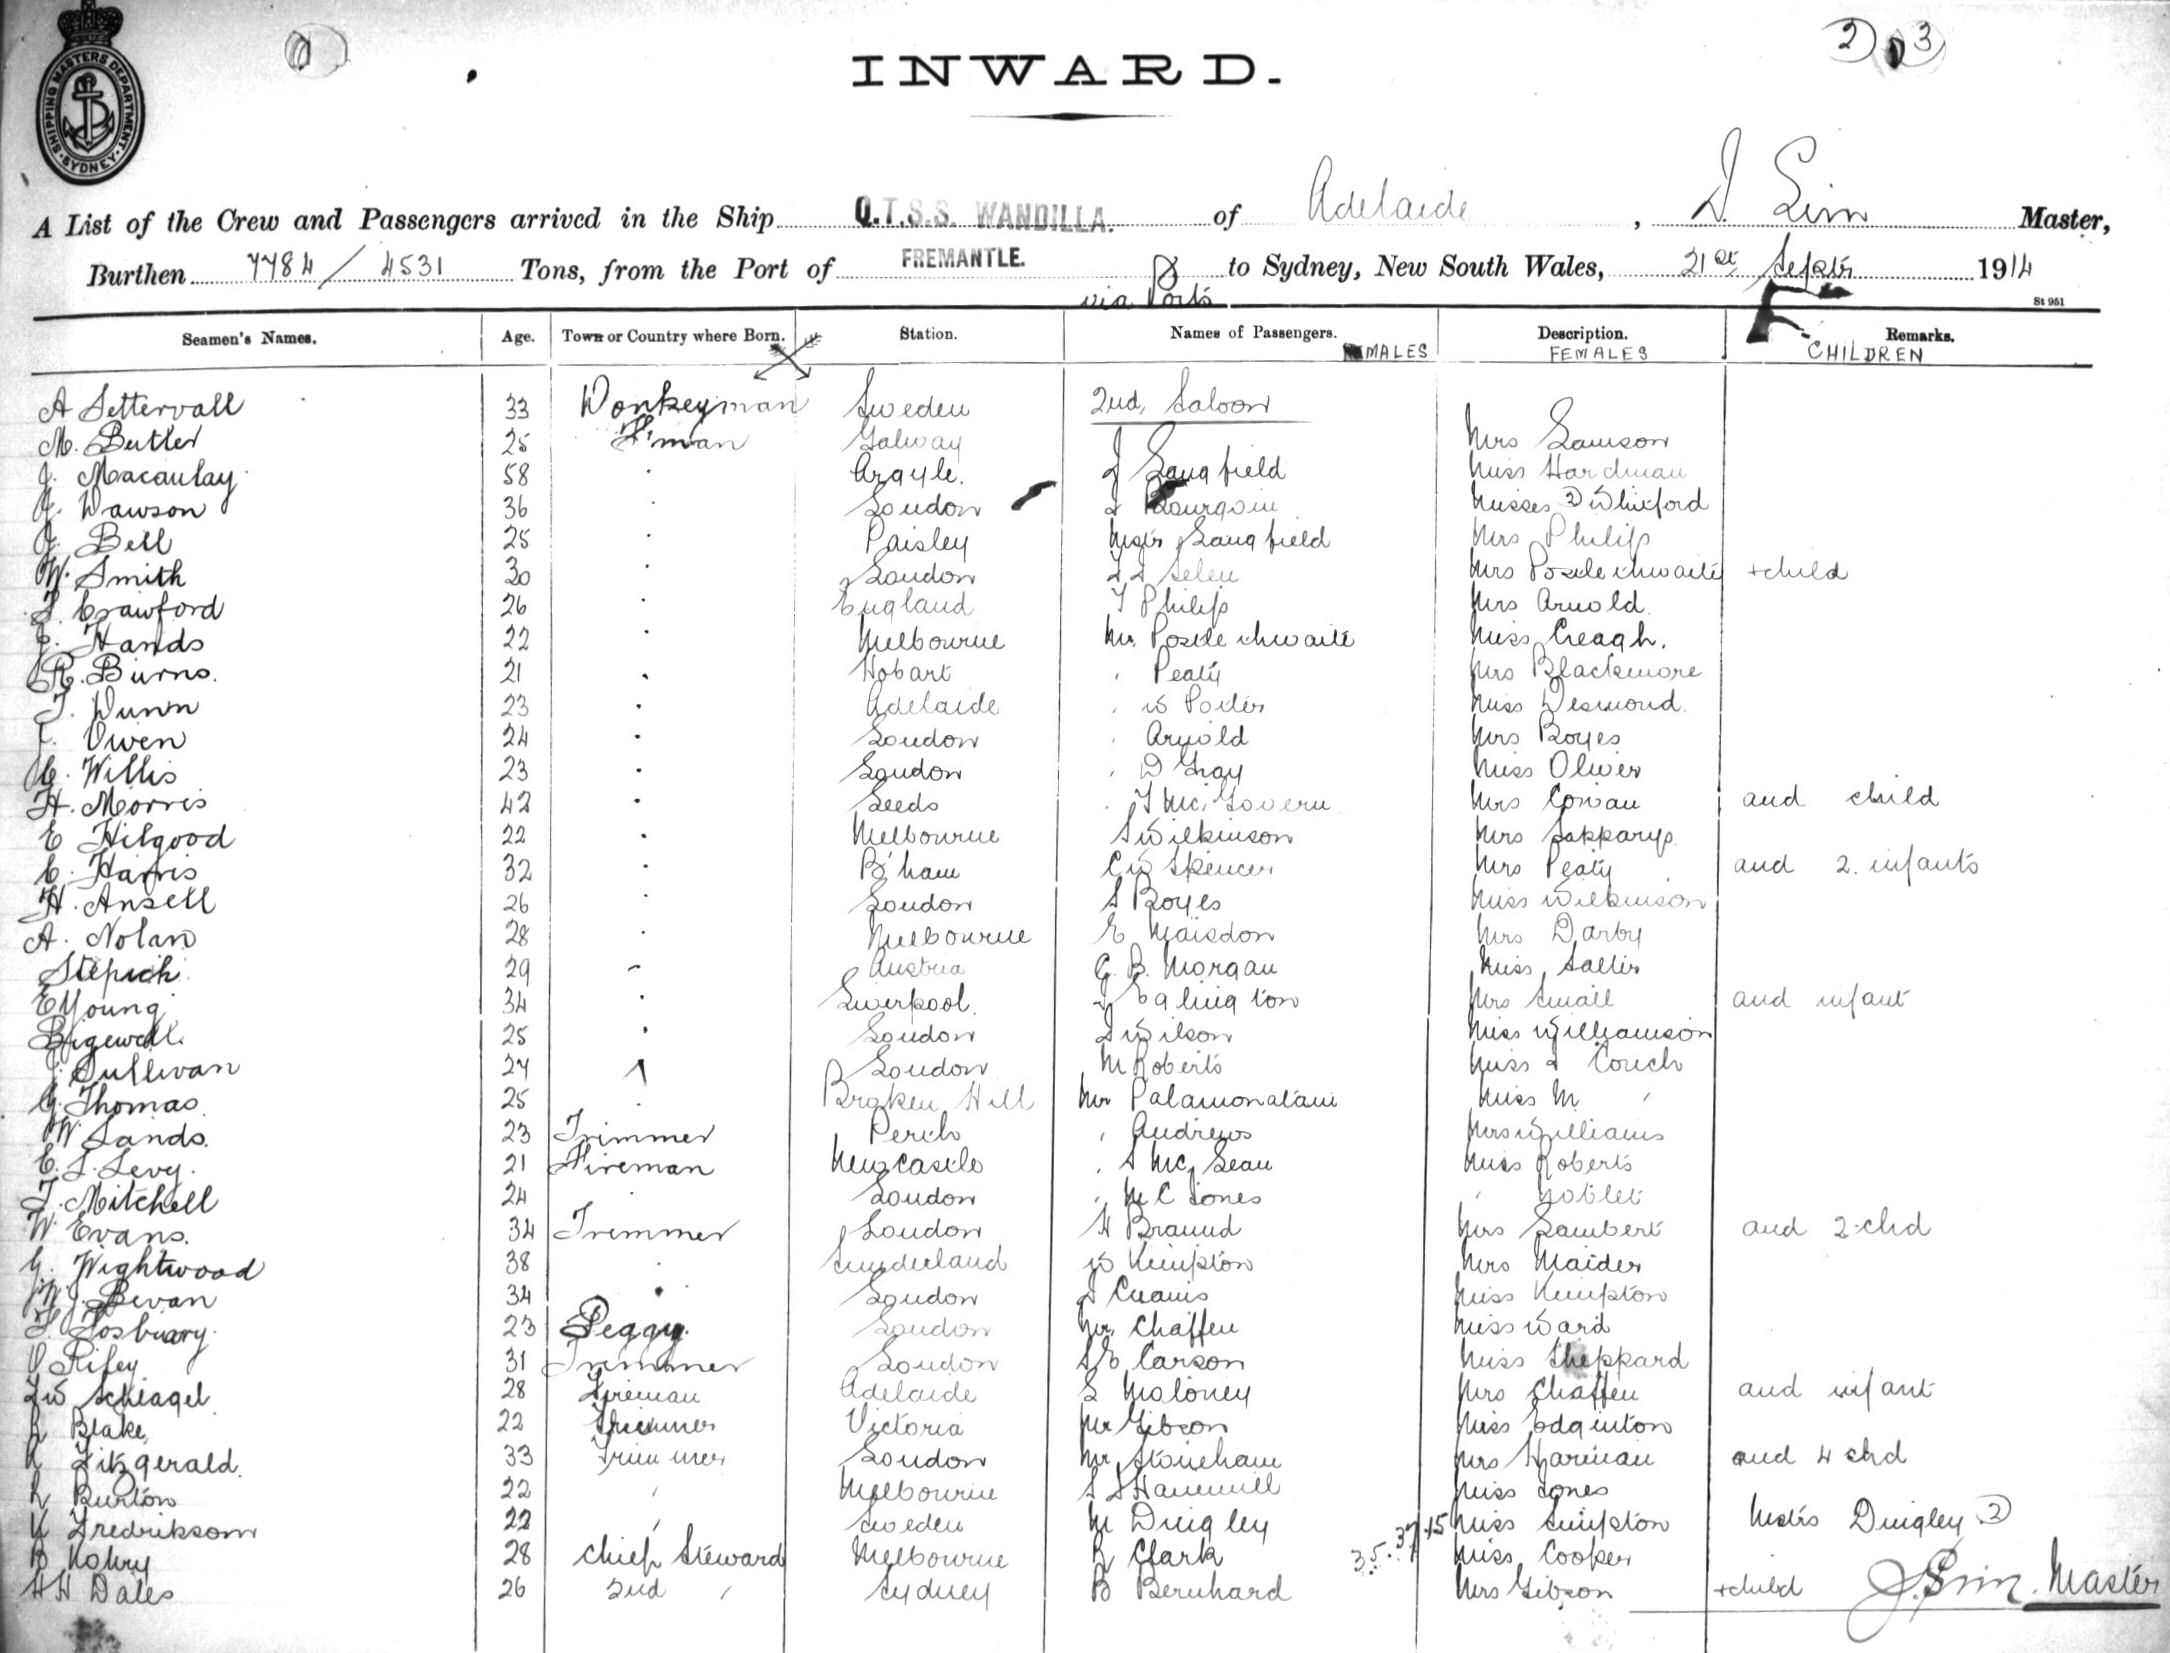 SHIPPING MASTERS DEPARTMENT SYDNEY
2 3
INWARD.
A List of the Crew and Passengers arrived in the Ship Q.T.S.S. WANDILLA. of Adelaide, Master,
Burthen 7784/4531 Tons, from the Port of FREMANTLE. to Sydney, New South Wales, 21st Septr 1914
via Ports
St 951
Seamen's Names. Age. Town or Country where Born. Station. Names of Passengers. Description. Remarks.
MALES FEMALES CHILDREN
A Settervall 33 Donkeyman Sweden 2nd Saloon
M. Butler 25 F'man Galway J Langfield Mrs Lamson
J. Macaulay 58 Argyle. Miss Hardman
J. Dawson 36 London Bourgoin Misses 2 Whitford
J. Bell 25 Paisley Mstr Langfield Mrs Philip
W. Smith 30 London Mrs Postlethwaite + child
Crawford 26 England T Philip Mrs Arnold
Hands 22 Melbourne Mr. Postlethwaite Miss Creagh.
R. Burns. 21 Hobart Peaty Mrs Blackmore
T. Dunn 23 Adelaide W Porter Miss Desmond
Owen 24 London Arnold Mrs Boyes
C. Willis 23 London D Gray Miss Oliver
H. Morris 42 Leeds T McGovern Mrs Cowan and child
E Hilgood 22 Melbourne S Wilkinson Mrs
C. Harris 32 B'ham C W Spencer Mrs Peaty and 2 infants
H. Ansell 26 London S Boyes Miss Wilkinson
A. Nolan 28 Melbourne E Maisdon Mrs Darby
Stepich 29 Austria G. B. Morgan Miss Salter
E Young 34 Liverpool. Eglington Mrs Small and infant
Bigewell. 25 London Wilson Miss Williamson
J. Sullivan 27 London M Roberts Miss Couch
G. Thomas 25 Broken Hill Mr Miss M. "
W. Sands. 23 Trimmer Perth " Andrews Mrs Williams
C. L. Levy. 21 Fireman Newcastle " S McLean Miss Roberts
T. Mitchell 24 London " M C Jones "
W Evans. 34 Trimmer London H Braund Mrs Lambert and 2 chd
G. Wightwood 38 Sunderland W Kempton Mrs Maider
W. J. Bevan 34 London Miss Kempton
Fosbuary. 23 Peggy. London Mr. Chaffen Miss Ward
Rifey 31 Trimmer London S E Carson Miss Sheppard
F W Schlagel 28 Fireman Adelaide S Moloney Mrs Chaffen and infant
R Blake, 22 Trimmer Victoria Mr Gibson Miss Edginton
R Fitzgerald. 33 Trimmer London Mr Stoneham Mrs Harman and 4 chd
R Burton 22 " Melbourne S S Hammill Miss Jones
K Fredrikson 22 " Sweden M Duigley Miss Simpton Mstrs Duigley 2
B 28 Chief Steward Melbourne R Clark 35.37.15 Miss Cooper
H H Dales 26 2nd " Sydney B Bernhard Mrs Gibson + child J. Sim. Master